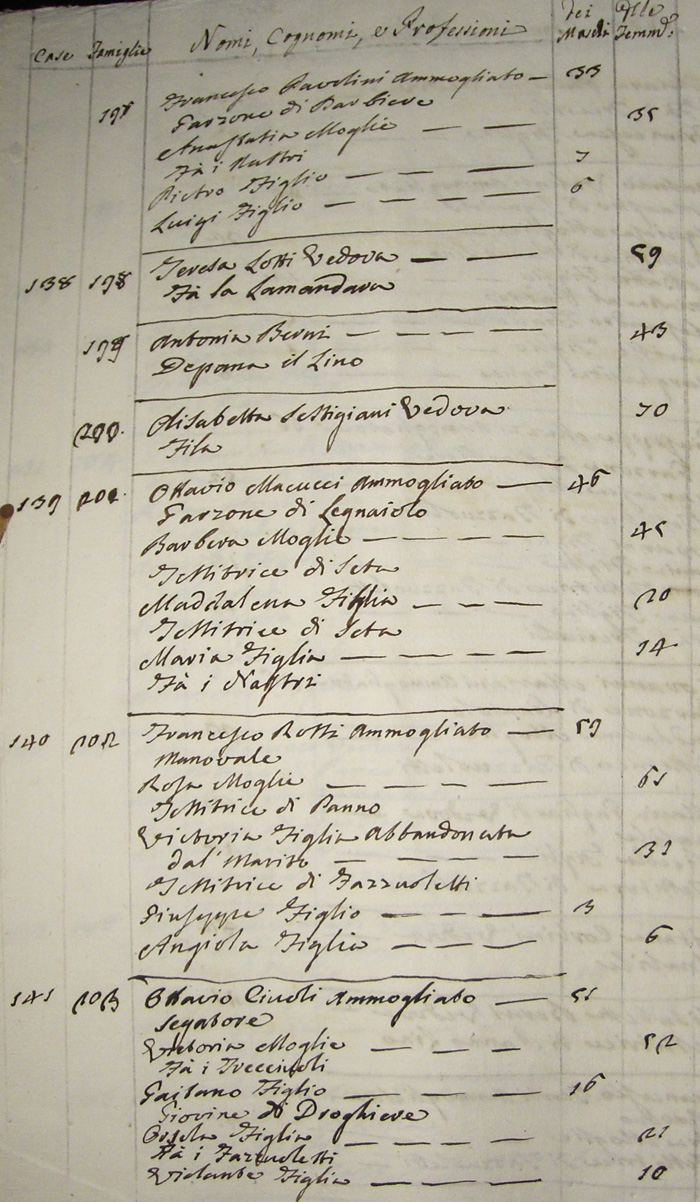 Case Famiglie Nomi, Cognomi, e Professioni dei Maschi delle Femm.e
197 Francesco Pavolini Ammogliato — 33
Garzone di Barbiere
Anastatia Moglie — — 35
Fà i Nastri
Pietro Figlio — — — 7
Luigi Figlio — — — — 6
138 198 Teresa Lotti Vedova — — — 59
Fà la Lamandara
199 Antonia Berni — — — — 43
Depana il Lino
200. Elisabetta Settigiani Vedova 70
Fila
139 201. Ottavio Macucci Ammogliato — 46
Garzone di Legnaiolo
Barbera Moglie — — — — 45
Tessitrice di Seta
Maddalena Figlia — — — 20
Tessitrice di Seta
Maria Figlia — — — — 14
Fà i Nastri
140 202 Francesco Rossi Ammogliato — 59
Manovale
Rosa Moglie — — — — 61
Tessitrice di Panno
Victoria Figlia Abbandonata
dal' Marito — — — — 31
Tessitrice di Fazzoletti
Giuseppe Figlio — — — — 3
Angiola Figlia — — — — 6
141 203 Ottavio Civoli Ammogliato — 51
Segatore
Victoria Moglie — — — — 52
Fà i Trecciuoli
Gaitano Figlio — — — — 16
Giovine di Droghiere
Orsola Figlia — — — — 21
Fà i Fazzuoletti
Violante Figlia — — — — 10